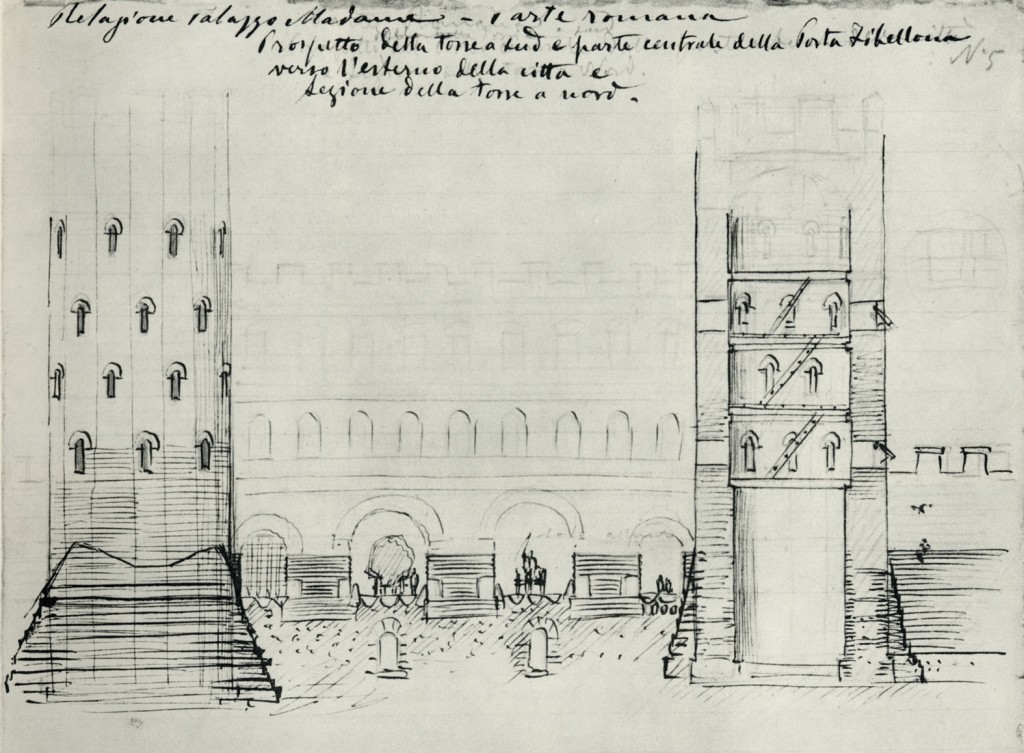 Relazione palazzo Madama - Parte romana
Prospetto della torre a sud e parte centrale della Porta Fibellona
N.5
verso l'esterno della città e
sezione della torre a nord.